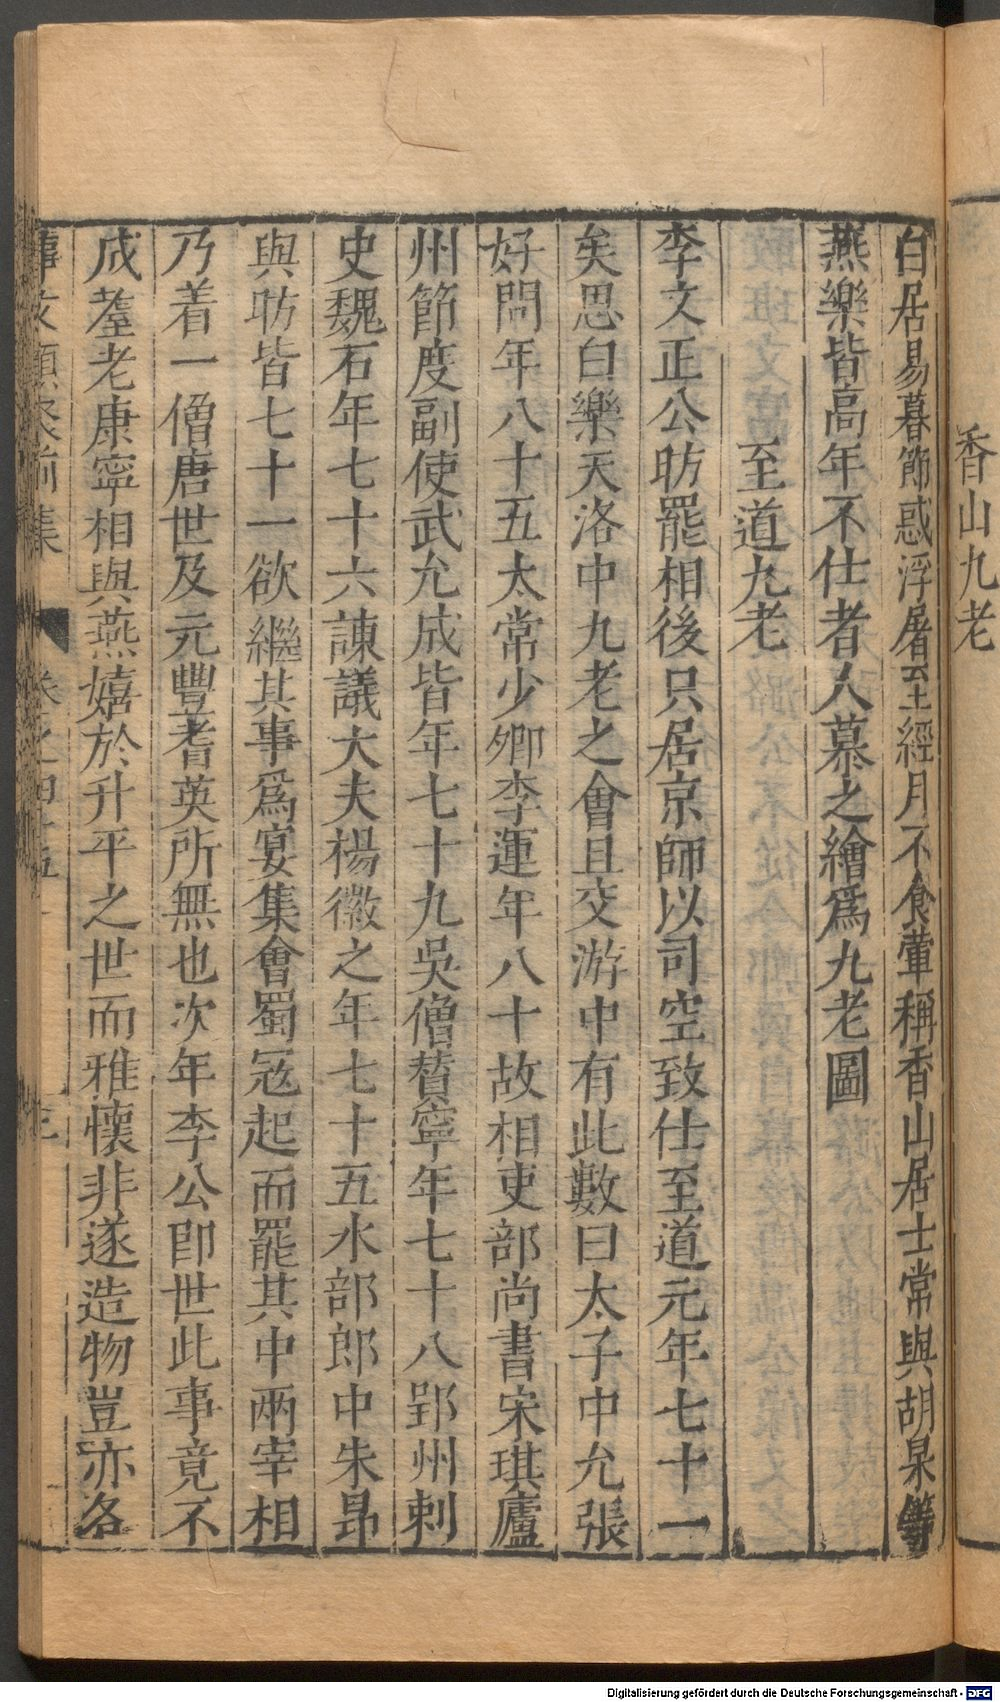 香山九老
白居易暮節惑浮屠至經月不食葷稱香山居士常與胡杲等
燕樂皆高年不仕者人慕之繪爲九老圖
至道九老
李文正公昉罷相後只居京師以司空致仕至道元年七十一
矣思白樂天洛中九老之會且交游中有此數曰太子中允張
好問年八十五太常少卿李運年八十故相吏部尚書宋琪廬
州節度副使武允成皆年七十九吳僧賛寧年七十八郢州剌
史魏石年七十六諫議大夫楊徽之年七十五水部郎中朱昂
與昉皆七十一欲繼其事爲宴集會蜀冦起而罷其中兩宰相
乃着一僧唐世及元豐耆英所無也次年李公卽世此事竟不
成耋老康寧相與燕嬉於升平之世而雅懷非遂造物豈亦各
事文類聚前集 卷之四十五 三
Digitalisierung gefördert durch die Deutsche Forschungsgemeinschaft - DFG